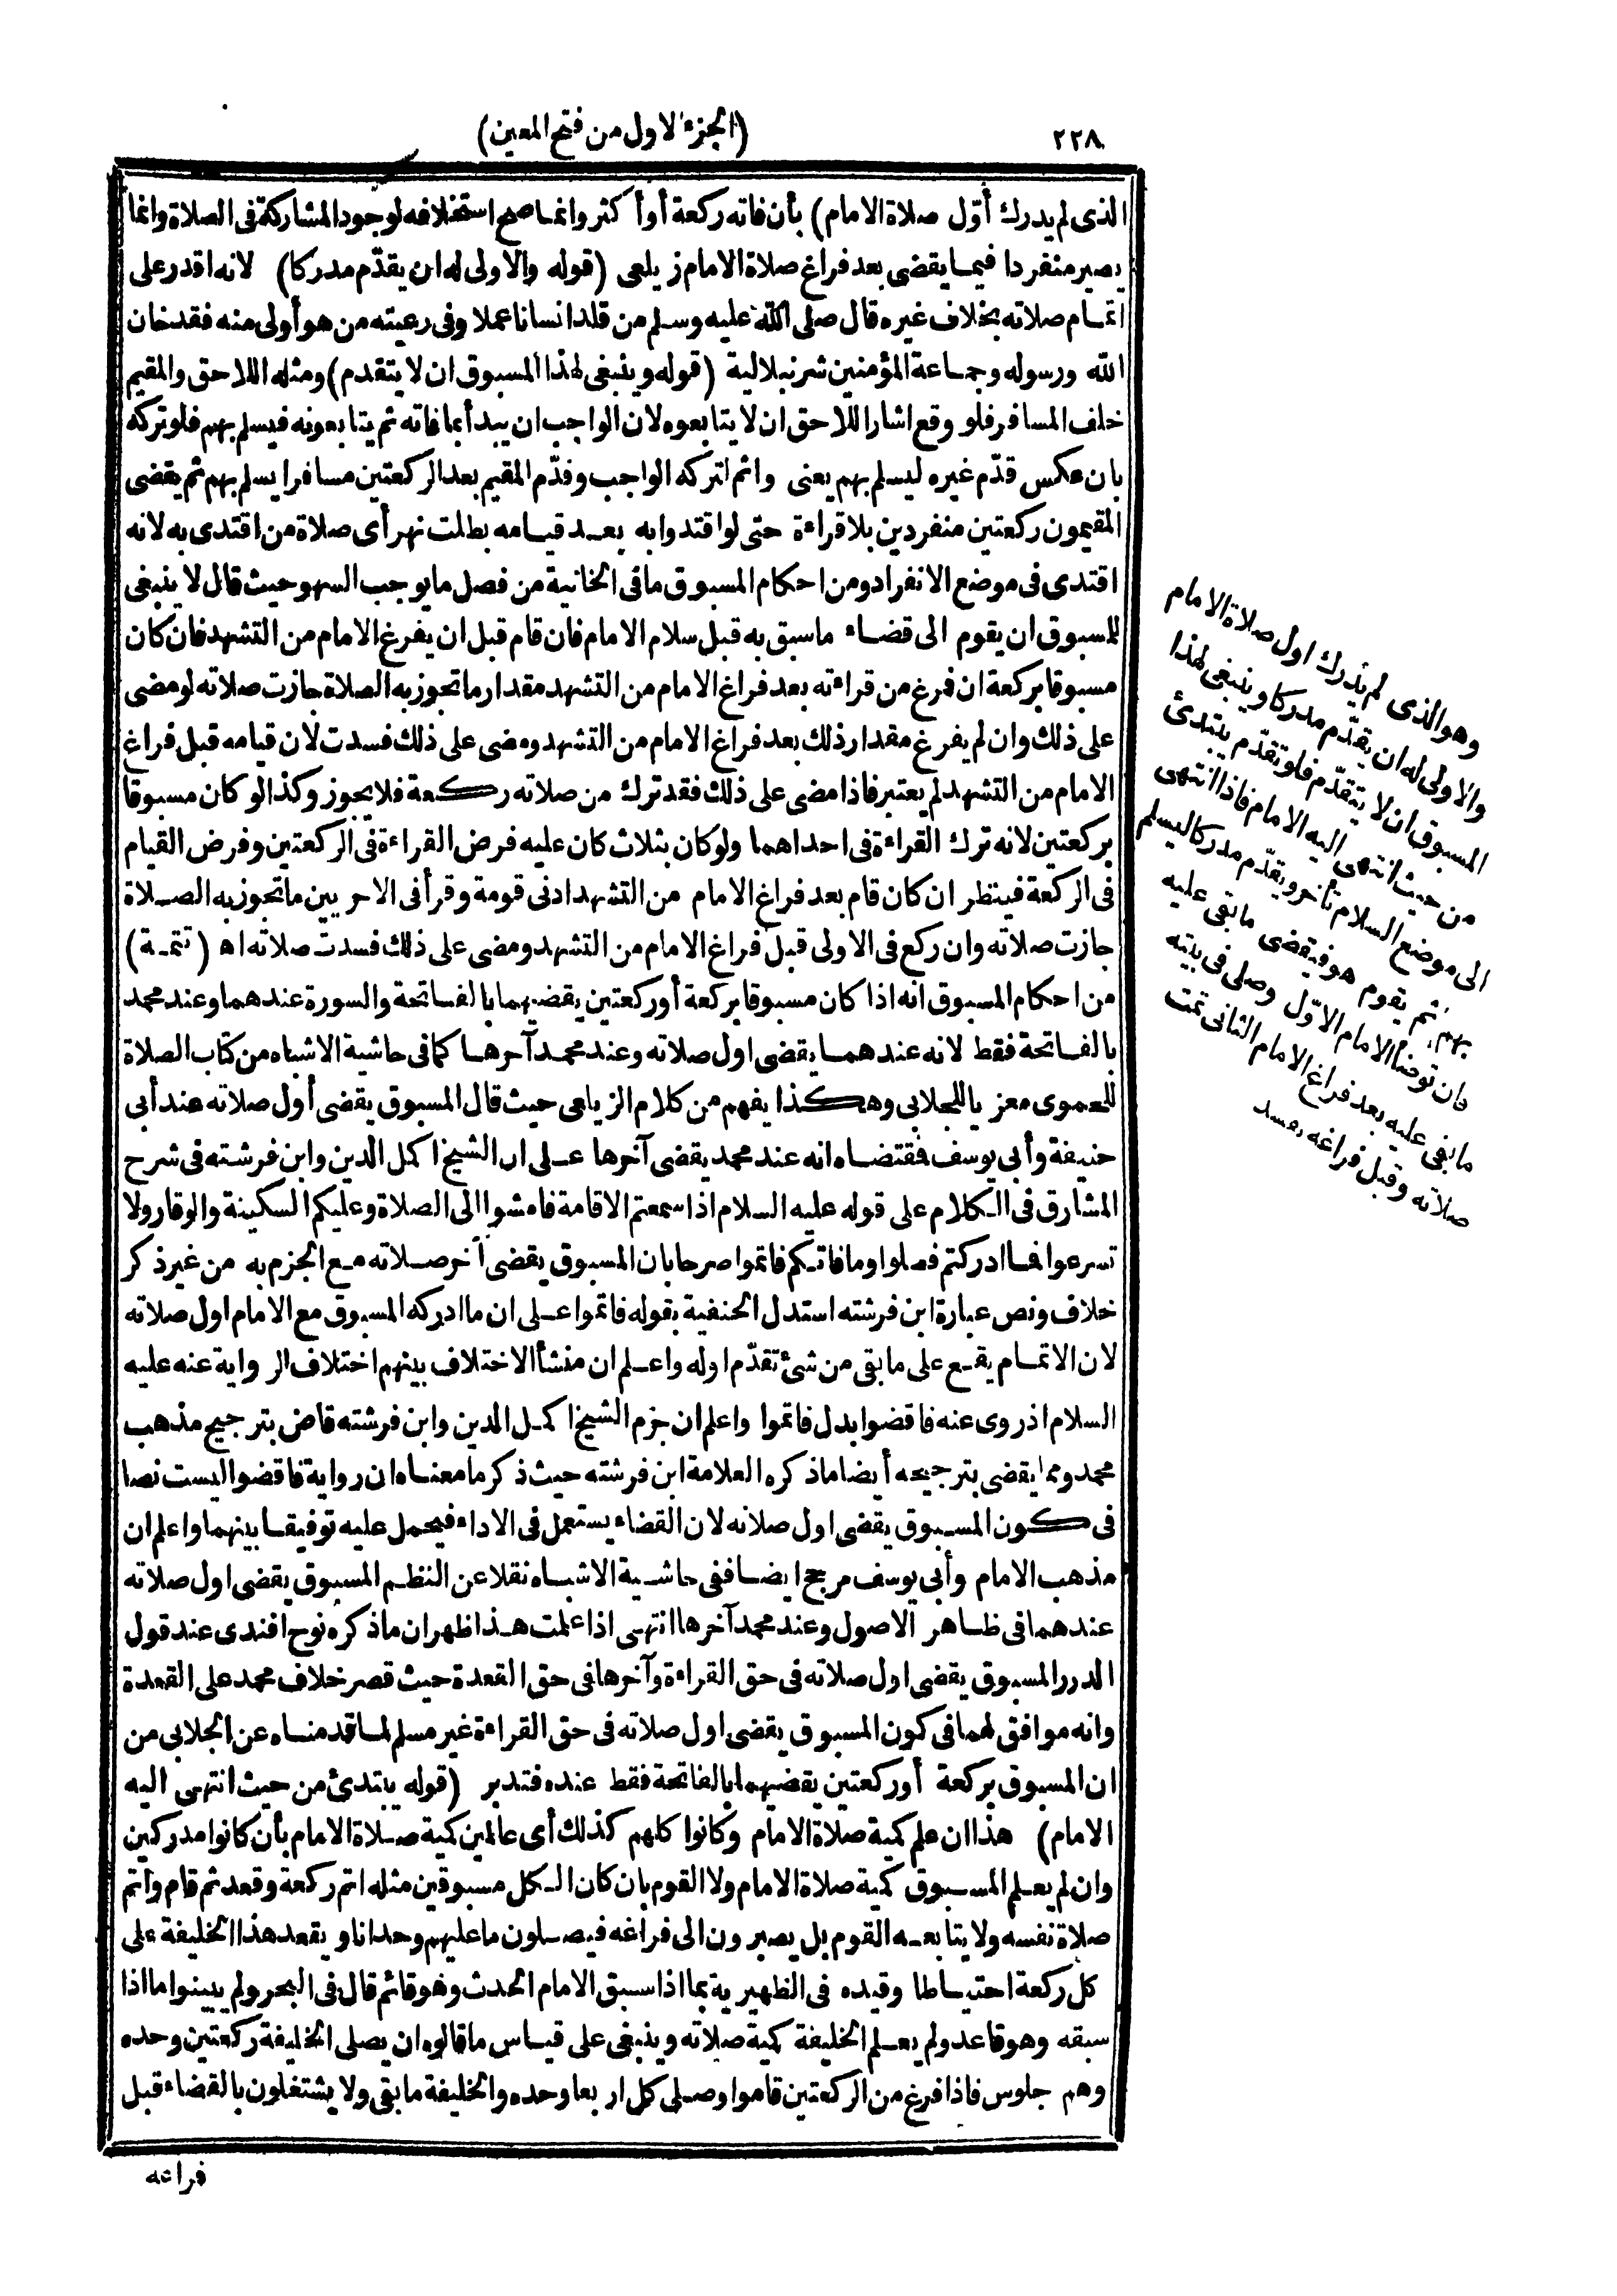 ٢٢٨
(الجزء الاول من فتح المعين)
الذى لم يدرك أوّل صلاة الامام) بأن فاته ركعة أو أكثر وانما صح استخلافه لوجود المشاركة فى الصلاة وانما
يصير منفردا فيما يقضى بعد فراغ صلاة الامام زيلعى (قوله والاولى له ان يقدّم مدركا) لانه اقدر على
اتمام صلاته بخلاف غيره قال صلى الله عليه وسلم من قلد انسانا عملا وفى رعيته من هو أولى منه فقد خان
الله ورسوله وجماعة المؤمنين شرنبلالية (قوله وينبغى لهذا المسبوق ان لا يتقدم) ومثله اللاحق والمقيم
خلف المسافر فلو وقع اشار اللاحق ان لا يتابعوه لان الواجب ان يبدأ بما فاته ثم يتابعونه فيسلم بهم فلو تركه
بان عكس قدّم غيره ليسلم بهم يعنى واثم لتركه الواجب وقدّم المقيم بعد الركعتين مسافرا يسلم بهم ثم يقضى
المقيمون ركعتين منفردين بلا قراءة حتى لو اقتدوا به بعد قيامه بطلت نهر أى صلاة من اقتدى به لانه
اقتدى فى موضع الانفراد ومن احكام المسبوق ما فى الخانية من فصل ما يوجب السهو حيث قال لا ينبغى
للمسبوق ان يقوم الى قضاء ما سبق به قبل سلام الامام فان قام قبل ان يفرغ الامام من التشهد فان كان
مسبوقا بركعة ان فرغ من قراءته بعد فراغ الامام من التشهد مقدار ما تجوز به الصلاة جازت صلاته لو مضى
على ذلك وان لم يفرغ مقدار ذلك بعد فراغ الامام من التشهد ومضى على ذلك فسدت لان قيامه قبل فراغ
الامام من التشهد لم يعتبر فاذا مضى على ذلك فقد ترك من صلاته ركعة فلا يجوز وكذا لو كان مسبوقا
بركعتين لانه ترك القراءة فى احداهما ولو كان بثلاث كان عليه فرض القراءة فى الركعتين وفرض القيام
فى الركعة فينظر ان كان قام بعد فراغ الامام من التشهد ادنى قومة وقرأ فى الاخريين ما تجوز به الصلاة
جازت صلاته وان ركع فى الاولى قبل فراغ الامام من التشهد ومضى على ذلك فسدت صلاته اه (تتمة)
من احكام المسبوق انه اذا كان مسبوقا بركعة أو ركعتين يقضيهما بالفاتحة والسورة عندهما وعند محمد
بالفاتحة فقط لانه عندهما يقضى اول صلاته وعند محمد آخرها كما فى حاشية الاشباه من كتاب الصلاة
للحموى معزيا للجلابى وهكذا يفهم من كلام الزيلعى حيث قال المسبوق يقضى أول صلاته عند أبى
حنيفة وأبى يوسف فمقتضاه انه عند محمد يقضى آخرها على ان الشيخ اكمل الدين وابن فرشته فى شرح
المشارق فى الكلام على قوله عليه السلام اذا سمعتم الاقامة فامشوا الى الصلاة وعليكم السكينة والوقار ولا
تسرعوا فما ادركتم فصلوا وما فاتكم فاتموا صرحا بان المسبوق يقضى آخر صلاته مع الجزم به من غير ذكر
خلاف ونص عبارة ابن فرشته استدل الحنفية بقوله فاتموا على ان ما ادركه المسبوق مع الامام اول صلاته
لان الاتمام يقع على ما بقى من شئ تقدّم اوله واعلم ان منشأ الاختلاف بينهم اختلاف الرواية عنه عليه
السلام اذ روى عنه فاقضوا بدل فاتموا واعلم ان جزم الشيخ اكمل الدين وابن فرشته قاض بترجيح مذهب
محمد ومما يقضى بترجيحه أيضا ما ذكره العلامة ابن فرشته حيث ذكر ما معناه ان رواية فاقضوا ليست نصا
فى كون المسبوق يقضى اول صلاته لان القضاء يستعمل فى الاداء فيحمل عليه توفيقا بينهما واعلم ان
مذهب الامام وأبى يوسف مرجح ايضا ففى حاشية الاشباه نقلا عن النظم المسبوق يقضى اول صلاته
عندهما فى ظاهر الاصول وعند محمد آخرها انتهى اذا علمت هذا ظهر ان ما ذكره نوح افندى عند قول
الدرر المسبوق يقضى اول صلاته فى حق القراءة وآخرها فى حق القعدة حيث قصر خلاف محمد على القعدة
وانه موافق لهما فى كون المسبوق يقضى اول صلاته فى حق القراءة غير مسلم لما قدمناه عن الجلابى من
ان المسبوق بركعة أو ركعتين يقضيهما بالفاتحة فقط عنده فتدبر (قوله يبتدئ من حيث انتهى اليه
الامام) هذا ان علم كمية صلاة الامام وكانوا كلهم كذلك أى عالمين كمية صلاة الامام بأن كانوا مدركين
وان لم يعلم المسبوق كمية صلاة الامام ولا القوم بان كان الكل مسبوقين مثله اتم ركعة وقعد ثم قام وأتم
صلاة نفسه ولا يتابعه القوم بل يصبرون الى فراغه فيصلون ما عليهم وحدانا ويقعد هذا الخليفة على
كل ركعة احتياطا وقيده فى الظهيرية بما اذا سبق الامام الحدث وهو قائم قال فى البحر ولم يبينوا ما اذا
سبقه وهو قاعد ولم يعلم الخليفة كمية صلاته وينبغى على قياس ما قالوه ان يصلى الخليفة ركعتين وحده
وهم جلوس فاذا فرغ من الركعتين قاموا وصلى كل اربعا وحده والخليفة ما بقى ولا يشتغلون بالقضاء قبل
فراغه
وهو الذى لم يدرك اول صلاة الامام
والاولى له ان يقدّم مدركا وينبغى لهذا
المسبوق ان لا يتقدّم فلو تقدّم يبتدئ
من حيث انتهى اليه الامام فاذا انتهى
الى موضع السلام تأخر ويقدّم مدركا ليسلم
بهم ثم يقوم هو فيقضى ما بقى عليه
فان توضأ الامام الاوّل وصلى فى بيته
ما بقى عليه بعد فراغ الامام الثانى تمت
صلاته وقبل فراغه تفسد